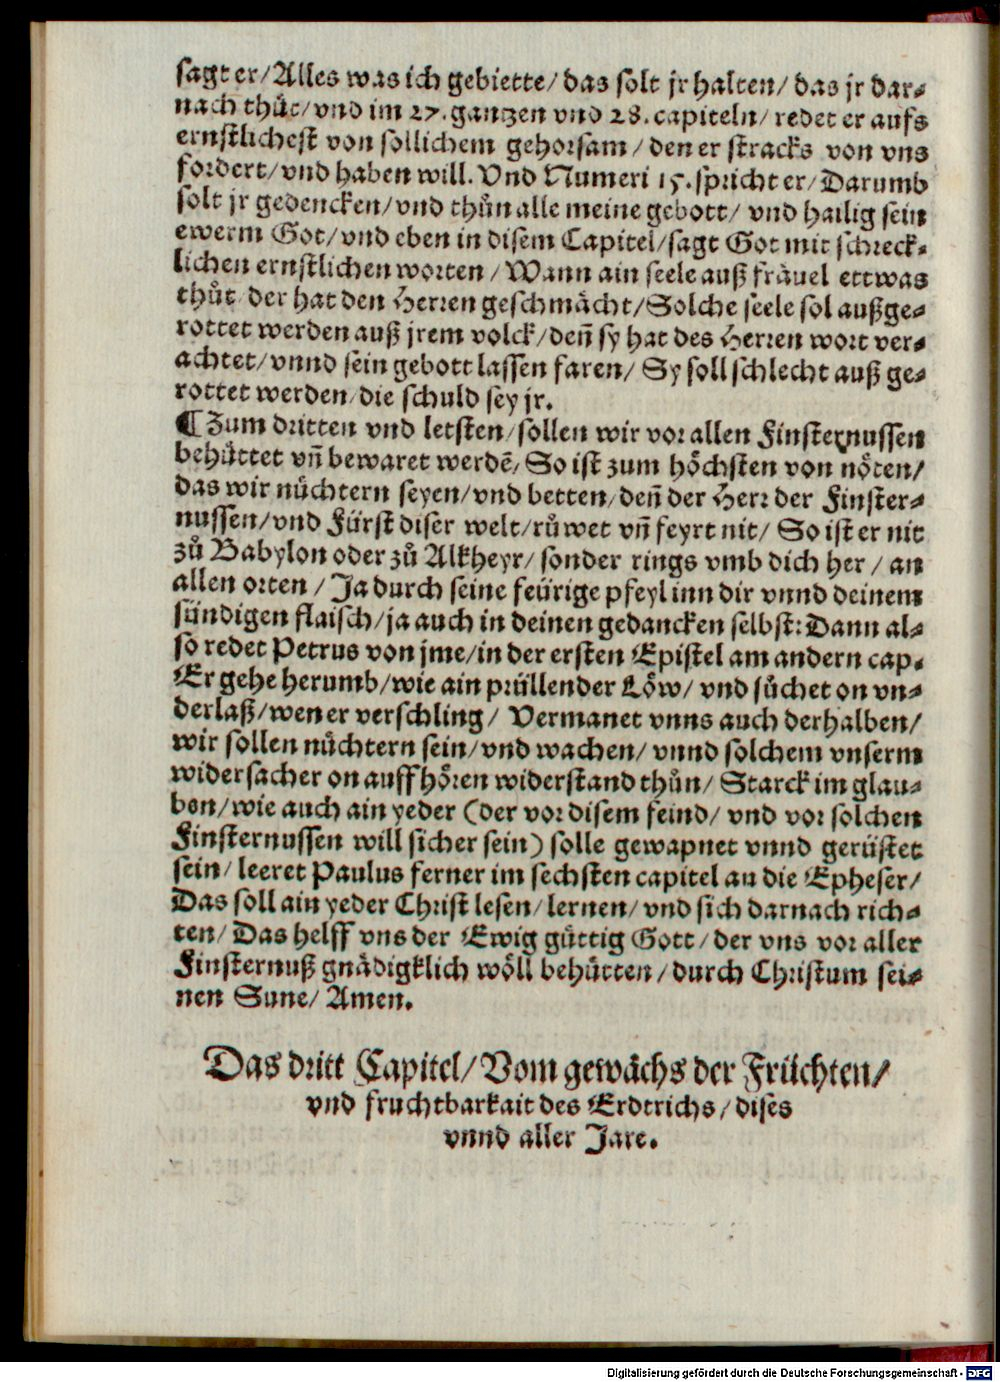 sagt er/ Alles was ich gebiette/ das solt jr halten/ das jr dar⸗
nach thuͤt/ vnd im 27. gantzen vnd 28. capiteln/ redet er aufs
ernstlichest von sollichem gehorsam/ den er stracks von vns
fordert/ vnd haben will. Vnd Numeri 15. spricht er/ Darumb
solt jr gedencken/ vnd thuͦn alle meine gebott/ vnd hailig sein
ewerm Got/ vnd eben in disem Capitel/ sagt Got mit schreck⸗
lichen ernstlichen worten/ Wann ain seele auß fraͤuel ettwas
thuͤt/ der hat den Herren geschmaͤcht/ Solche seele sol außge⸗
rottet werden auß jrem volck/ deñ sy hat des Herren wort ver⸗
achtet/ vnnd sein gebott lassen faren/ Sy soll schlecht auß ge⸗
rottet werden/ die schuld sey jr.
¶ Zum dritten vnd letsten/ sollen wir vor allen Finsternussen
behuͤttet vñ bewaret werdẽ/ So ist zum hoͤchsten von noͤten/
das wir nuͤchtern seyen/ vnd betten/ deñ der Herr der Finster⸗
nussen/ vnd Fürst diser welt/ ruͦwet vñ feyrt nit/ So ist er nit
zuͦ Babylon oder zuͦ Alkheyr/ sonder rings vmb dich her/ an
allen orten/ Ja durch seine feürige pfeyl inn dir vnnd deinem
sündigen flaisch/ ja auch in deinen gedancken selbst: Dann al⸗
so redet Petrus von jme/ in der ersten Epistel am andern cap.
Er gehe herumb/ wie ain prüllender Loͤw/ vnd suͤchet on vn⸗
derlaß/ wen er verschling/ Vermanet vnns auch derhalben/
wir sollen nuͤchtern sein/ vnd wachen/ vnnd solchem vnserm
widersacher on auffhoͤren widerstand thuͦn/ Starck im glau⸗
ben/ wie auch ain yeder (der vor disem feind/ vnd vor solchen
Finsternussen will sicher sein) solle gewapnet vnnd gerüstet
sein/ leeret Paulus ferner im sechsten capitel an die Epheser/
Das soll ain yeder Christ lesen/ lernen/ vnd sich darnach rich⸗
ten/ Das helff vns der Ewig guͤttig Gott/ der vns vor aller
Finsternuß gnaͤdigklich woͤll behuͤtten/ durch Christum sei⸗
nen Sune/ Amen.
Das dritt Capitel/ Vom gewaͤchs der Früchten/
vnd fruchtbarkait des Erdtrichs/ dises
vnnd aller Jare.
Digitalisierung gefördert durch die Deutsche Forschungsgemeinschaft - DFG